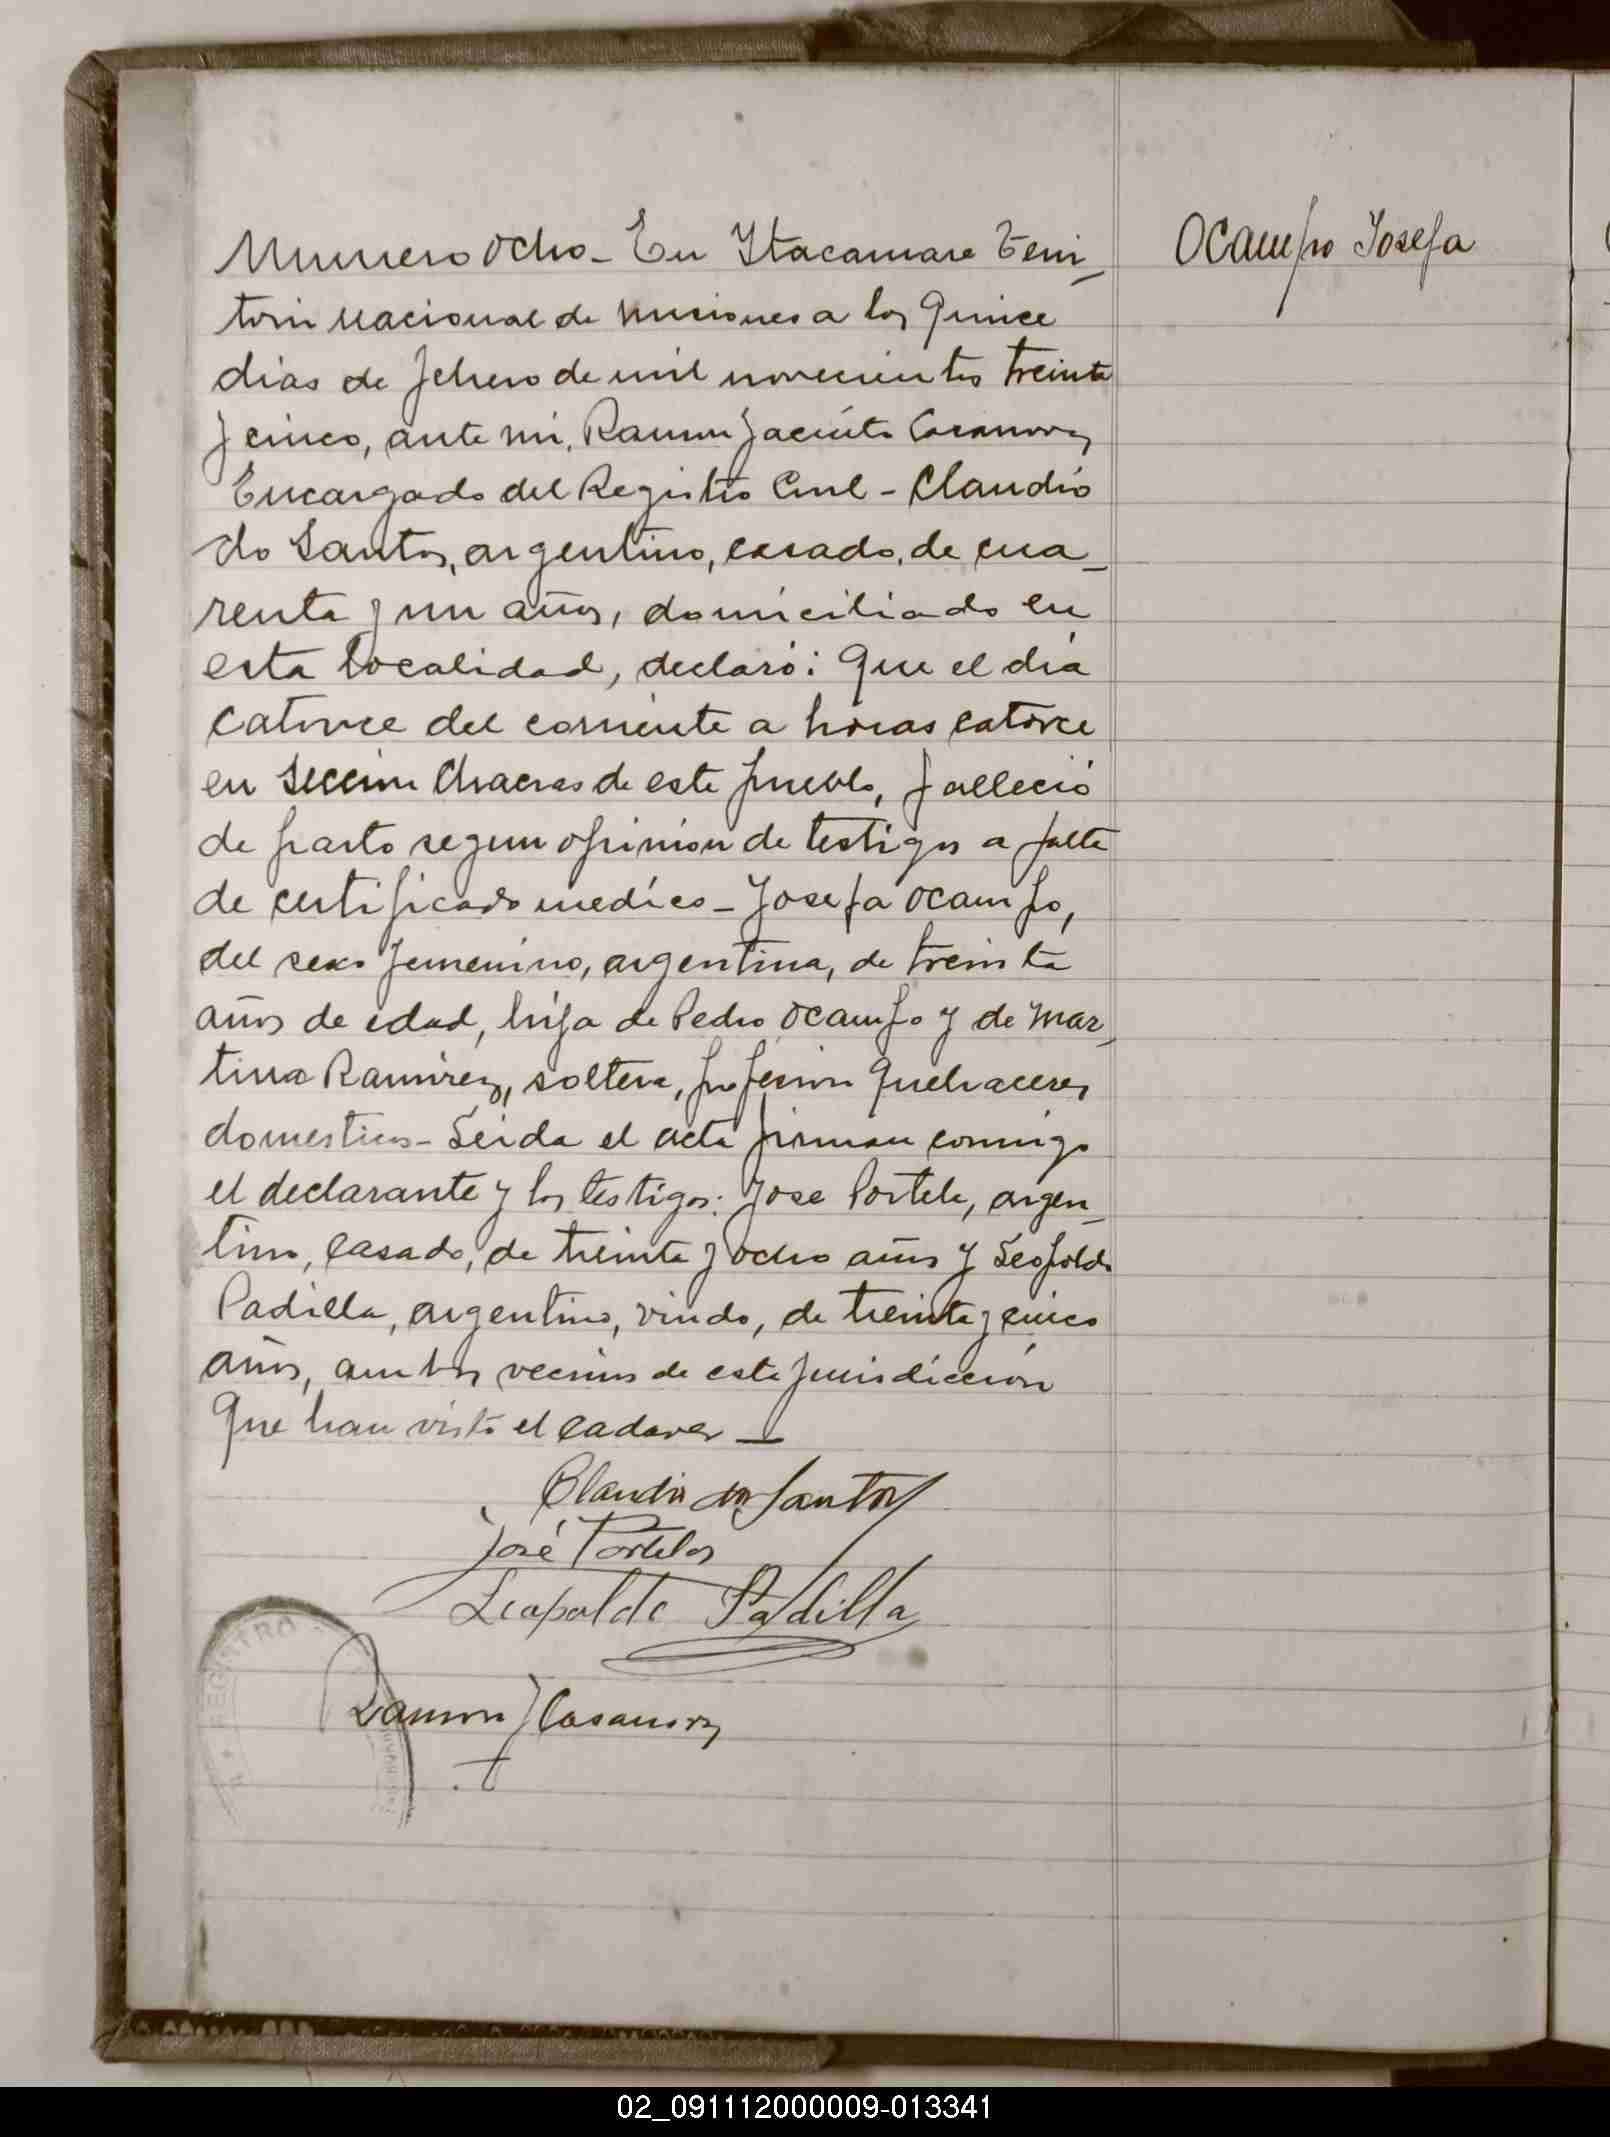 Numero Ocho_ En Itacaruare Terri_
Ocampo Josefa
torio nacional de Misiones a los quince
dias de febrero de mil novecientos treinta
y cinco, ante mi, Ramon Jacinto Casanova,
Encargado del Registro Civil - Claudio
do Santos, argentino, casado, de cua_
renta y un años, domiciliado en
esta localidad, declaró: Que el dia
catorce del corriente a horas catorce
en Seccion Chacras de este pueblo, falleció
de parto segun opinion de testigos a falta
de certificado medico _ Josefa Ocampo,
del sexo femenino, argentina, de treinta
años de edad, hija de Pedro Ocampo y de Mar_
tina Ramirez, soltera, profesion quehaceres
domesticos - Leida el acta firman conmigo
el declarante y los testigos: Jose Portela, argen_
tino, casado, de treinta y ocho años y Leopoldo
Padilla, argentino, viudo, de treinta y cinco
años, ambos vecinos de esta jurisdicción
que han visto el cadaver _
Claudio do Santos
José Portela
Leopoldo Padilla
REGISTRO
Ramon J Casanova
02_091112000009-013341